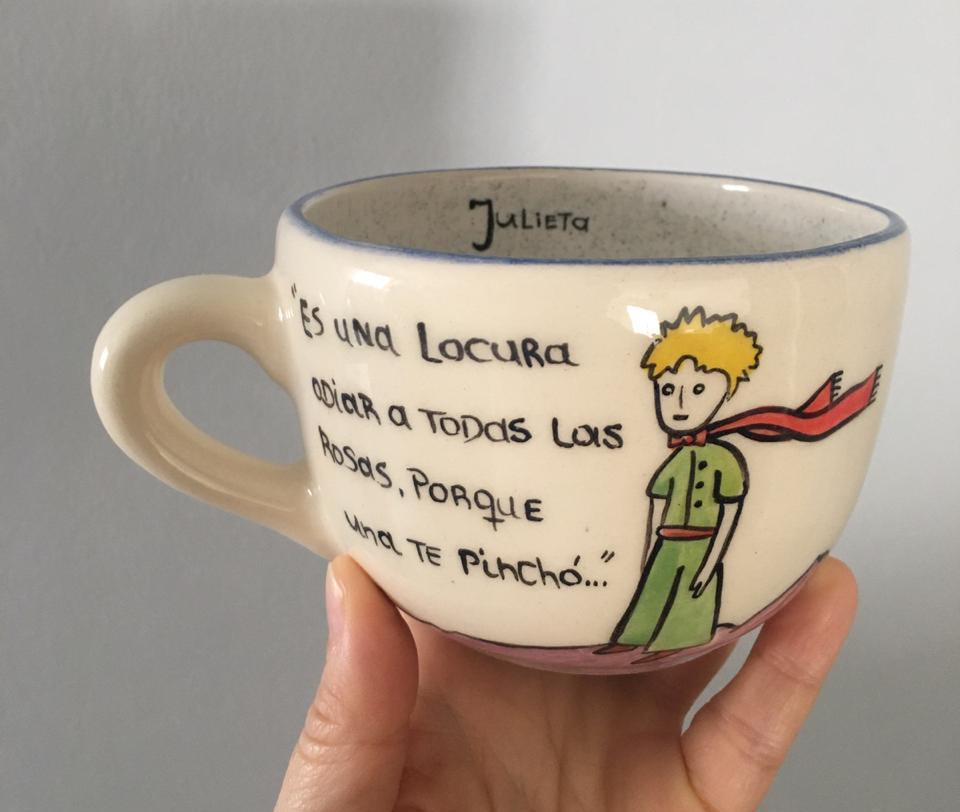 Julieta
"Es una locura
odiar a todas las
rosas, porque
una te pinchó..."